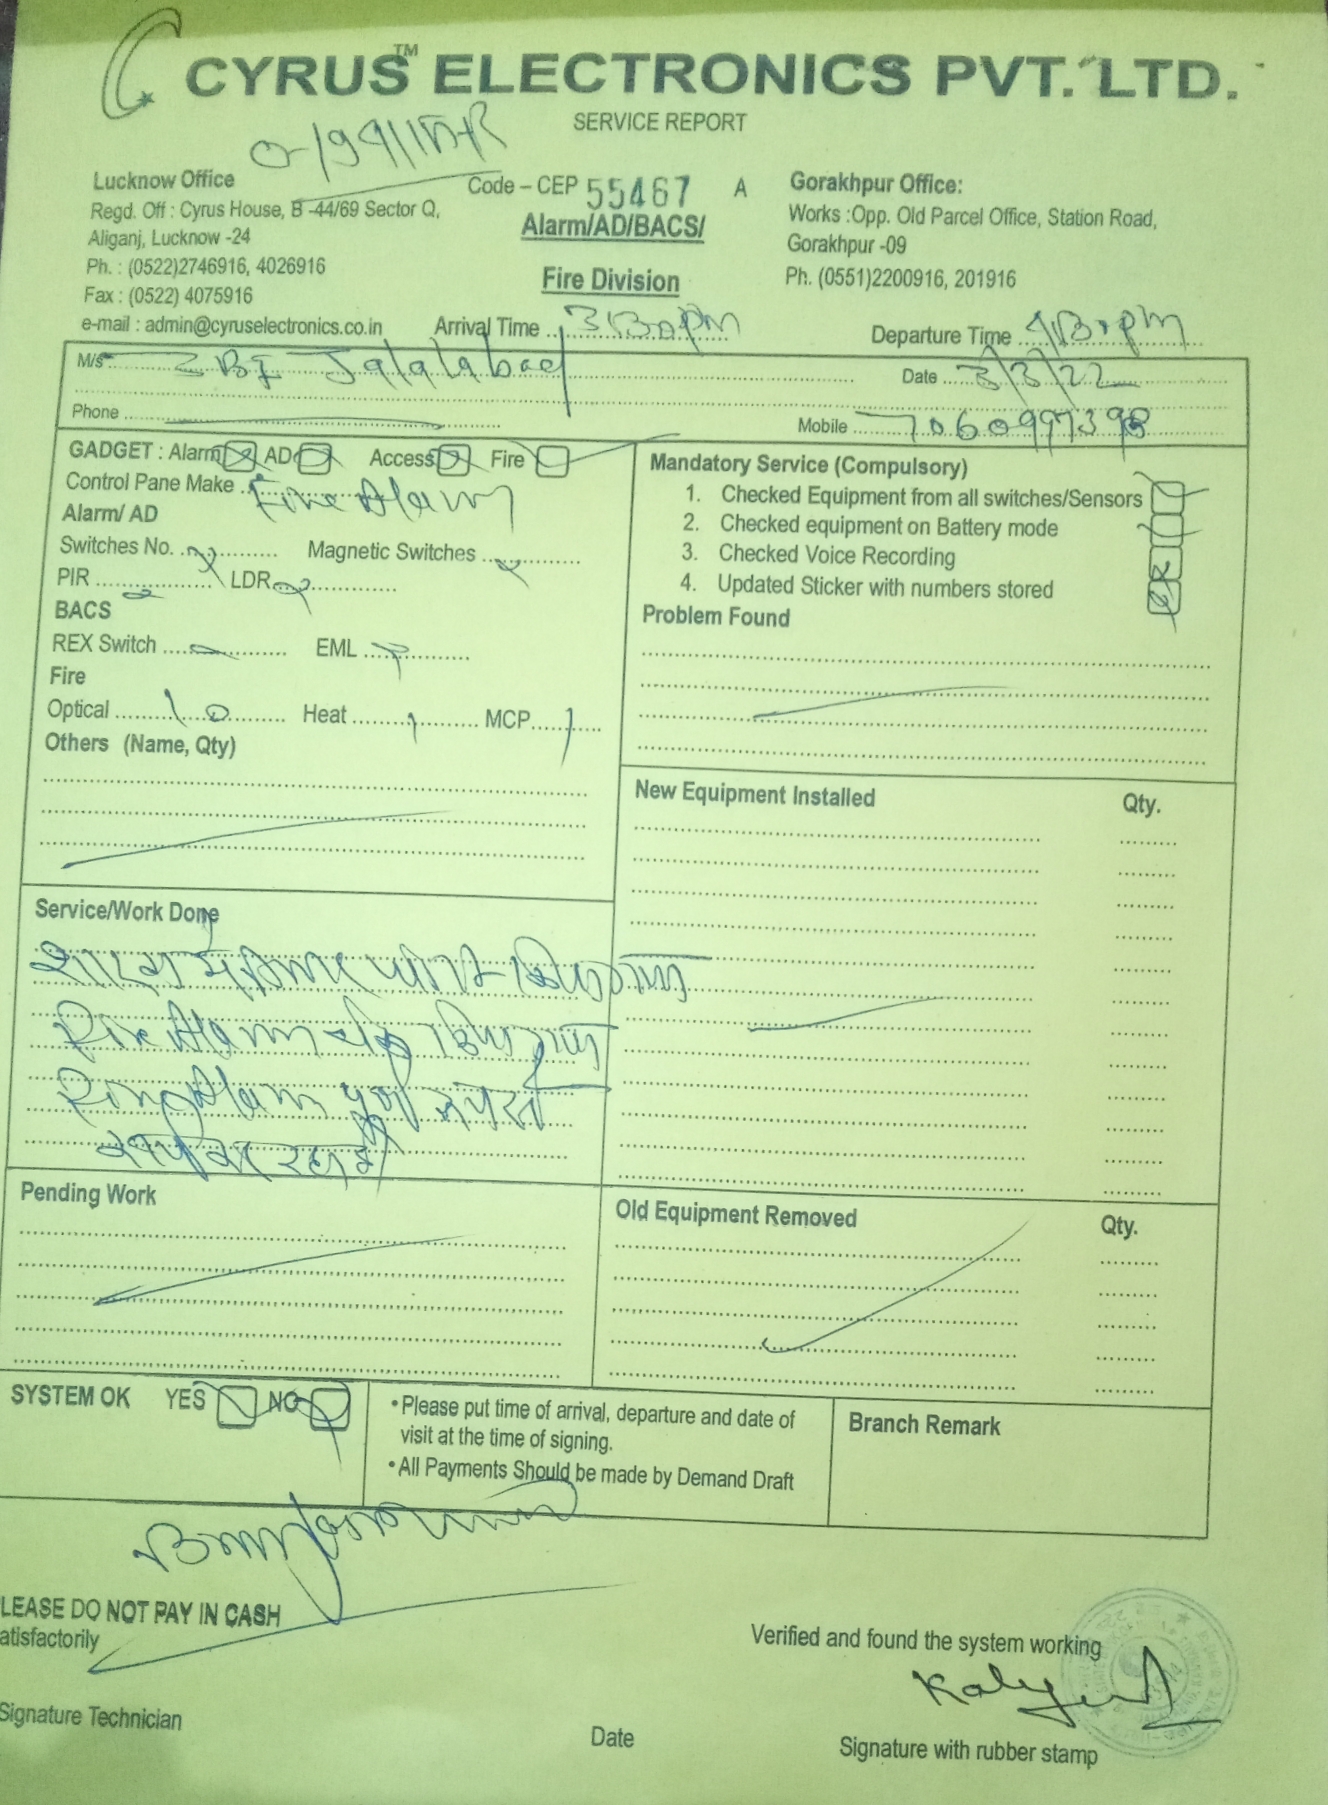 CYRUS™ ELECTRONICS PVT. LTD.
SERVICE REPORT
Lucknow Office
Regd. Off : Cyrus House, B -44/69 Sector Q,
Aliganj, Lucknow -24
Ph. : (0522)2746916, 4026916
Fax : (0522) 4075916
e-mail : admin@cyruselectronics.co.in
Code – CEP 55467 A
Alarm/AD/BACS/
Fire Division
Gorakhpur Office:
Works :Opp. Old Parcel Office, Station Road,
Gorakhpur -09
Ph. (0551)2200916, 201916
Arrival Time 3:30 PM
Departure Time 4:30 PM
M/s SBI Jalalabad
Date 3/3/22
Phone
Mobile 7060997398
GADGET : Alarm AD Access Fire
Control Pane Make Fire Alarm
Alarm/ AD
Switches No. Magnetic Switches
PIR LDR
BACS
REX Switch EML
Fire
Optical 10 Heat 1 MCP 1
Others (Name, Qty)
Mandatory Service (Compulsory)
1. Checked Equipment from all switches/Sensors
2. Checked equipment on Battery mode
3. Checked Voice Recording
4. Updated Sticker with numbers stored
Problem Found
New Equipment Installed Qty.
Service/Work Done
Fire Alarm चेक किया गया
Fire Alarm
Pending Work
Old Equipment Removed Qty.
SYSTEM OK YES NO
•Please put time of arrival, departure and date of
visit at the time of signing.
•All Payments Should be made by Demand Draft
Branch Remark
LEASE DO NOT PAY IN CASH
atisfactorily
Signature Technician
Date
Verified and found the system working
Signature with rubber stamp